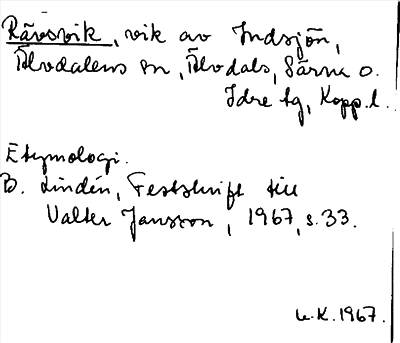 Rävsvik, vik av Indsjön,
Älvdalens sn, Älvdals, Särna o.
Idre tg, Kopp. l.
Etymologi.
B. Lindén, Festskrift till
Valter Jansson, 1967, s. 33.
L.K. 1967.